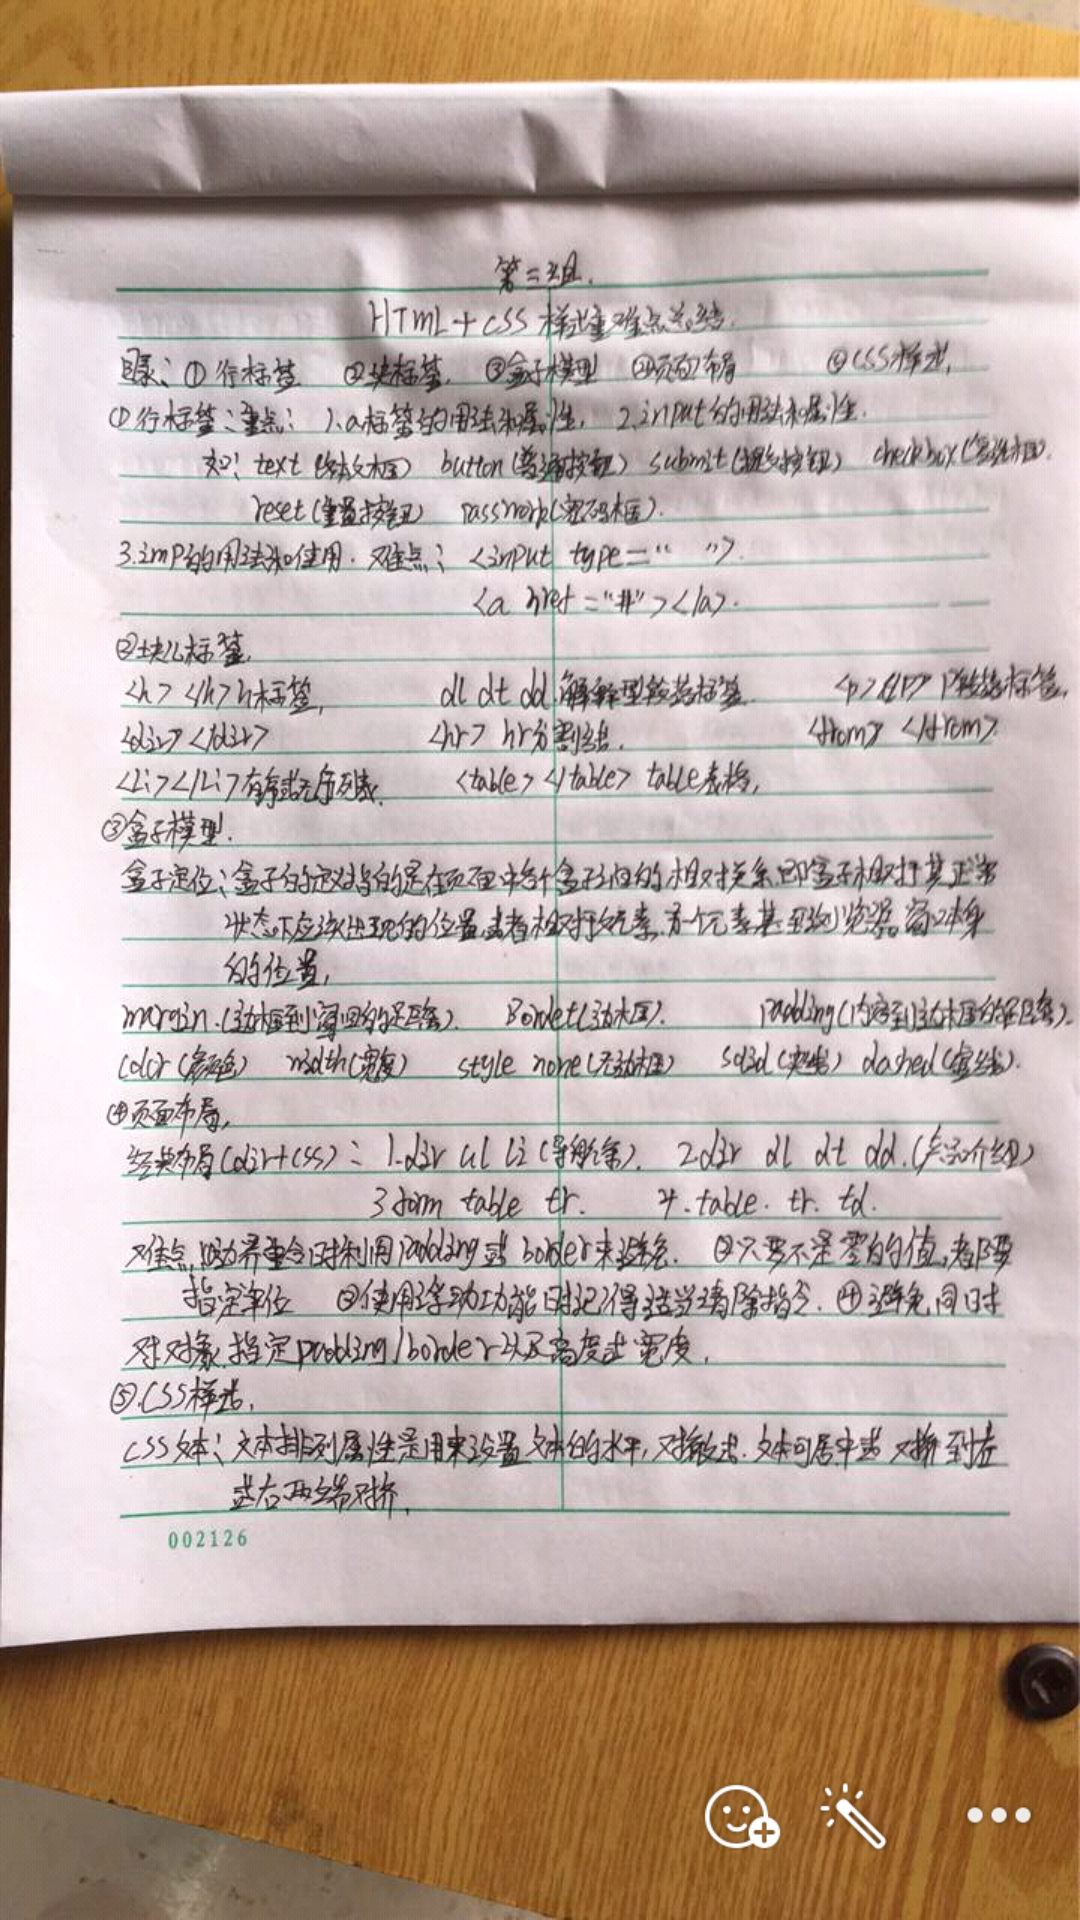 第三组.
HTML+CSS 样式重难点总结.
目录: ① 行标签 ②块标签. ③盒子模型 ④页面布局 ⑤CSS样式,
①行标签: 重点: 1.a标签的用法和属性, 2.input的用法和属性.
如: text (文本框) button(普通按钮) submit(提交按钮) checkbox(复选框).
reset(重置按钮) password(密码框).
3.imp的用法和使用. 难点: <input type=" ">.
<a href="#"></a>.
②块儿标签,
<h></h>h标签, dl dt dd 解释型 标签 <p></p> P 标签,
<div></div> <hr> hr分割线. <from> </from>.
<Li></Li>有序或无序列表, <table></table> table表格,
③盒子模型.
盒子定位: 盒子的定义指的是在页面中各个盒子之间的相对关系,即盒子相对于其正常
状态下应该出现的位置,或者相对于父元素,另一个元素甚至浏览器窗口本身
的位置,
margin.(边框到 的距离). Border(边框). padding(内容到边框的距离).
color(颜色) width(宽度) style none(无边框) solid(实线) dashed(虚线).
④页面布局,
经典布局(div+css): 1.div ul li (导航条). 2.div dl dt dd.(产品介绍)
3 form table tr. 4.table. tr. td.
难点,①边界重合时利用padding或border来避免. ②只要不是零的值,都要
指定单位 ③使用浮动功能时记得适当清除指令. ④避免同时
对对象指定padding/border以及高度或宽度.
⑤.CSS样式,
CSS文本: 文本排列属性是用来设置文本的水平,对齐方式.文本可居中或对齐到左
或右两端对齐.
002126